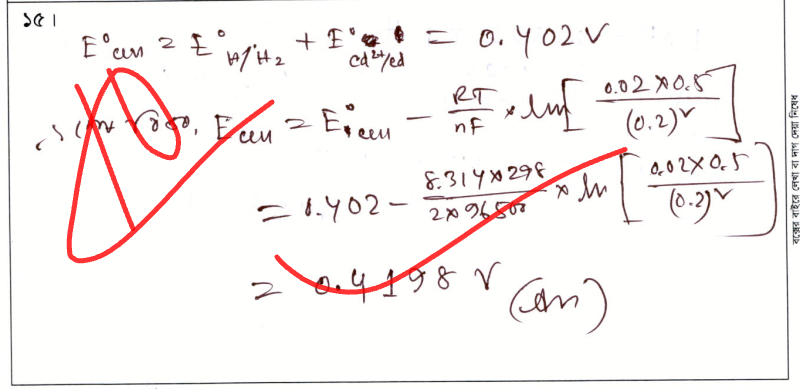 ১৫।
E°cell = E°H⁺/H₂ + E°cd²⁺/cd = 0.402V
Ecell = E°cell - RT/nF × ln[0.02×0.5/(0.2)²]
= 0.402 - 8.314×298/2×96500 × ln[0.02×0.5/(0.2)²]
= 0.4198 V (Ans)
বক্সের বাইরে লেখা বা দাগ দেয়া নিষেধ